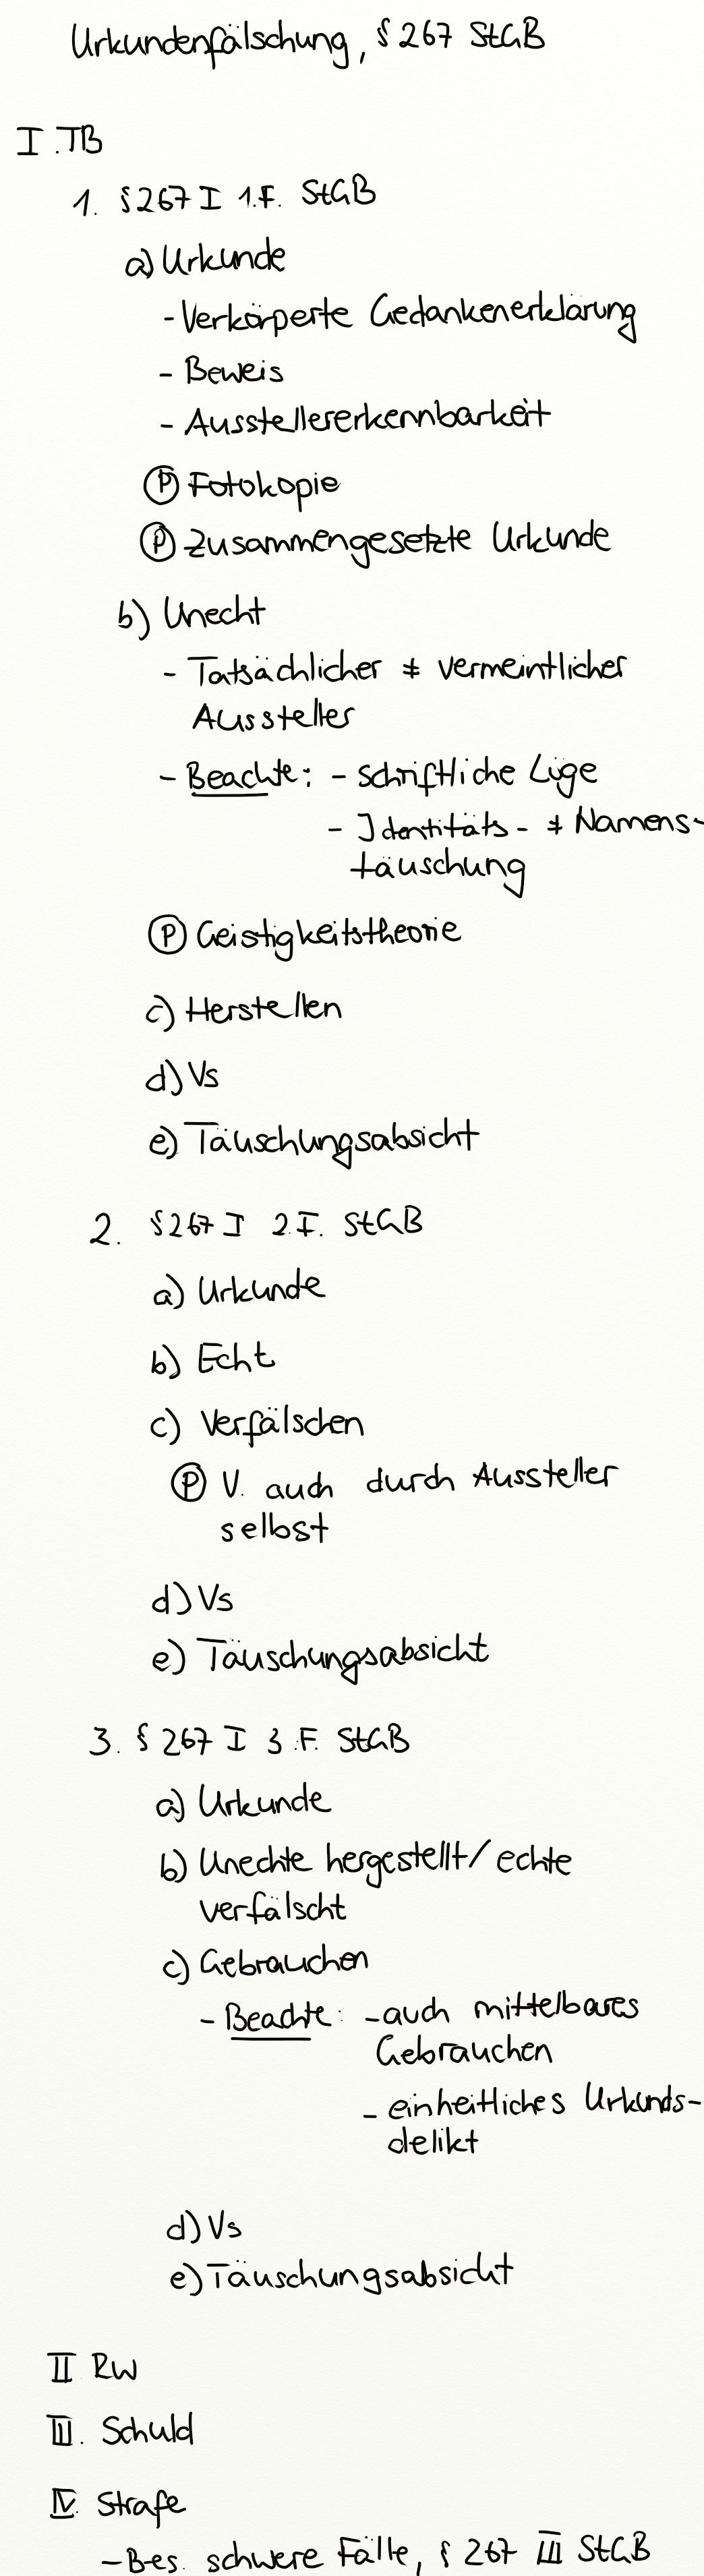 Urkundenfälschung, § 267 StGB
I. TB
1. § 267 I 1.F. StGB
a) Urkunde
- Verkörperte Gedankenerklärung
- Beweis
- Ausstellererkennbarkeit
Ⓟ Fotokopie
Ⓟ Zusammengesetzte Urkunde
b) Unecht
- Tatsächlicher ≠ vermeintlicher
Aussteller
- Beachte: - schriftliche Lüge
- Identitäts- ≠ Namens-
täuschung
Ⓟ Geistigkeitstheorie
c) Herstellen
d) Vs
e) Täuschungsabsicht
2. § 267 I 2.F. StGB
a) Urkunde
b) Echt
c) Verfälschen
Ⓟ V. auch durch Aussteller
selbst
d) Vs
e) Täuschungsabsicht
3. § 267 I 3.F. StGB
a) Urkunde
b) Unechte hergestellt/echte
verfälscht
c) Gebrauchen
- Beachte: - auch mittelbares
Gebrauchen
- einheitliches Urkunds-
delikt
d) Vs
e) Täuschungsabsicht
II RW
III. Schuld
IV. Strafe
- Bes. schwere Fälle, § 267 III StGB